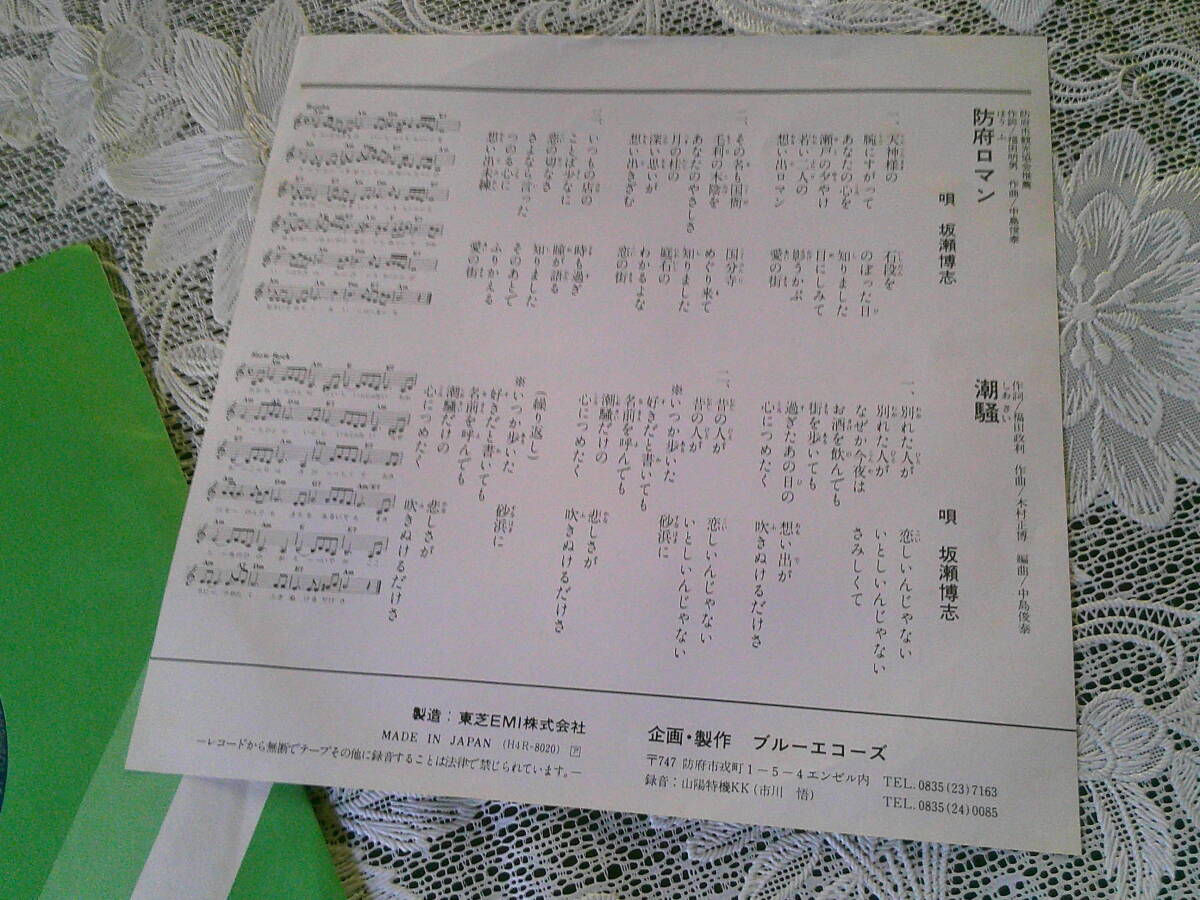 防府市観光協会推薦
作詞/福田明男 作曲/中島俊泰
防府ロマン
ぼうふ
唄 坂瀬博志
一、
天神様の 石段を
腕にすがって のぼった日
あなたの心を 知りました
瀬戸の夕やけ 目にしみて
若い二人の 影うかぶ
想い出ロマン 愛の街
二、
その名も国衙 国分寺
毛利の木陰を めぐり来て
あなたのやさしさ 知りました
月の桂の 庭石の
深い思いが わかるよな
想い出きざむ 恋の街
三、
いつもの店の 時も過ぎ
ことば少なに 瞳が語る
恋の切なさ 知りました
さよなら言った そのあとで
つのる心に ふりかえる
想い出未練 愛の街
作詞/福田政利 作曲/木村正博 編曲/中島俊泰
潮騒
しおさい
唄 坂瀬博志
一、
別れた人が 恋しいんじゃない
別れた人が いとしいんじゃない
なぜか今夜は さみしくて
お酒を飲んでも
街を歩いても
過ぎたあの日の 想い出が
心につめたく 吹きぬけるだけさ
二、
昔の人が 恋しいんじゃない
昔の人が いとしいんじゃない
※いつか歩いた 砂浜に
好きだと書いても
名前を呼んでも
潮騒だけの 悲しさが
心につめたく 吹きぬけるだけさ
(繰り返し)
※いつか歩いた 砂浜に
好きだと書いても
名前を呼んでも
潮騒だけの 悲しさが
心につめたく 吹きぬけるだけさ
Slow Rock
製造:東芝EMI株式会社
MADE IN JAPAN (H4R-8020) Ⓟ
—レコードから無断でテープその他に録音することは法律で禁じられています。—
企画・製作 ブルーエコーズ
〒747 防府市戎町1-5-4エンゼル内 TEL.0835(23)7163
録音:山陽特機KK(市川 悟) TEL.0835(24)0085